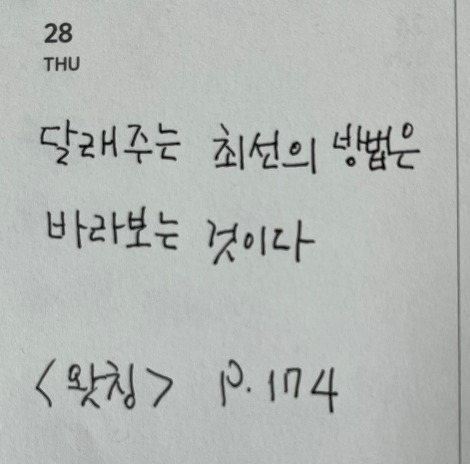 28
THU
달래주는 최선의 방법은
바라보는 것이다
<왓칭> p.174